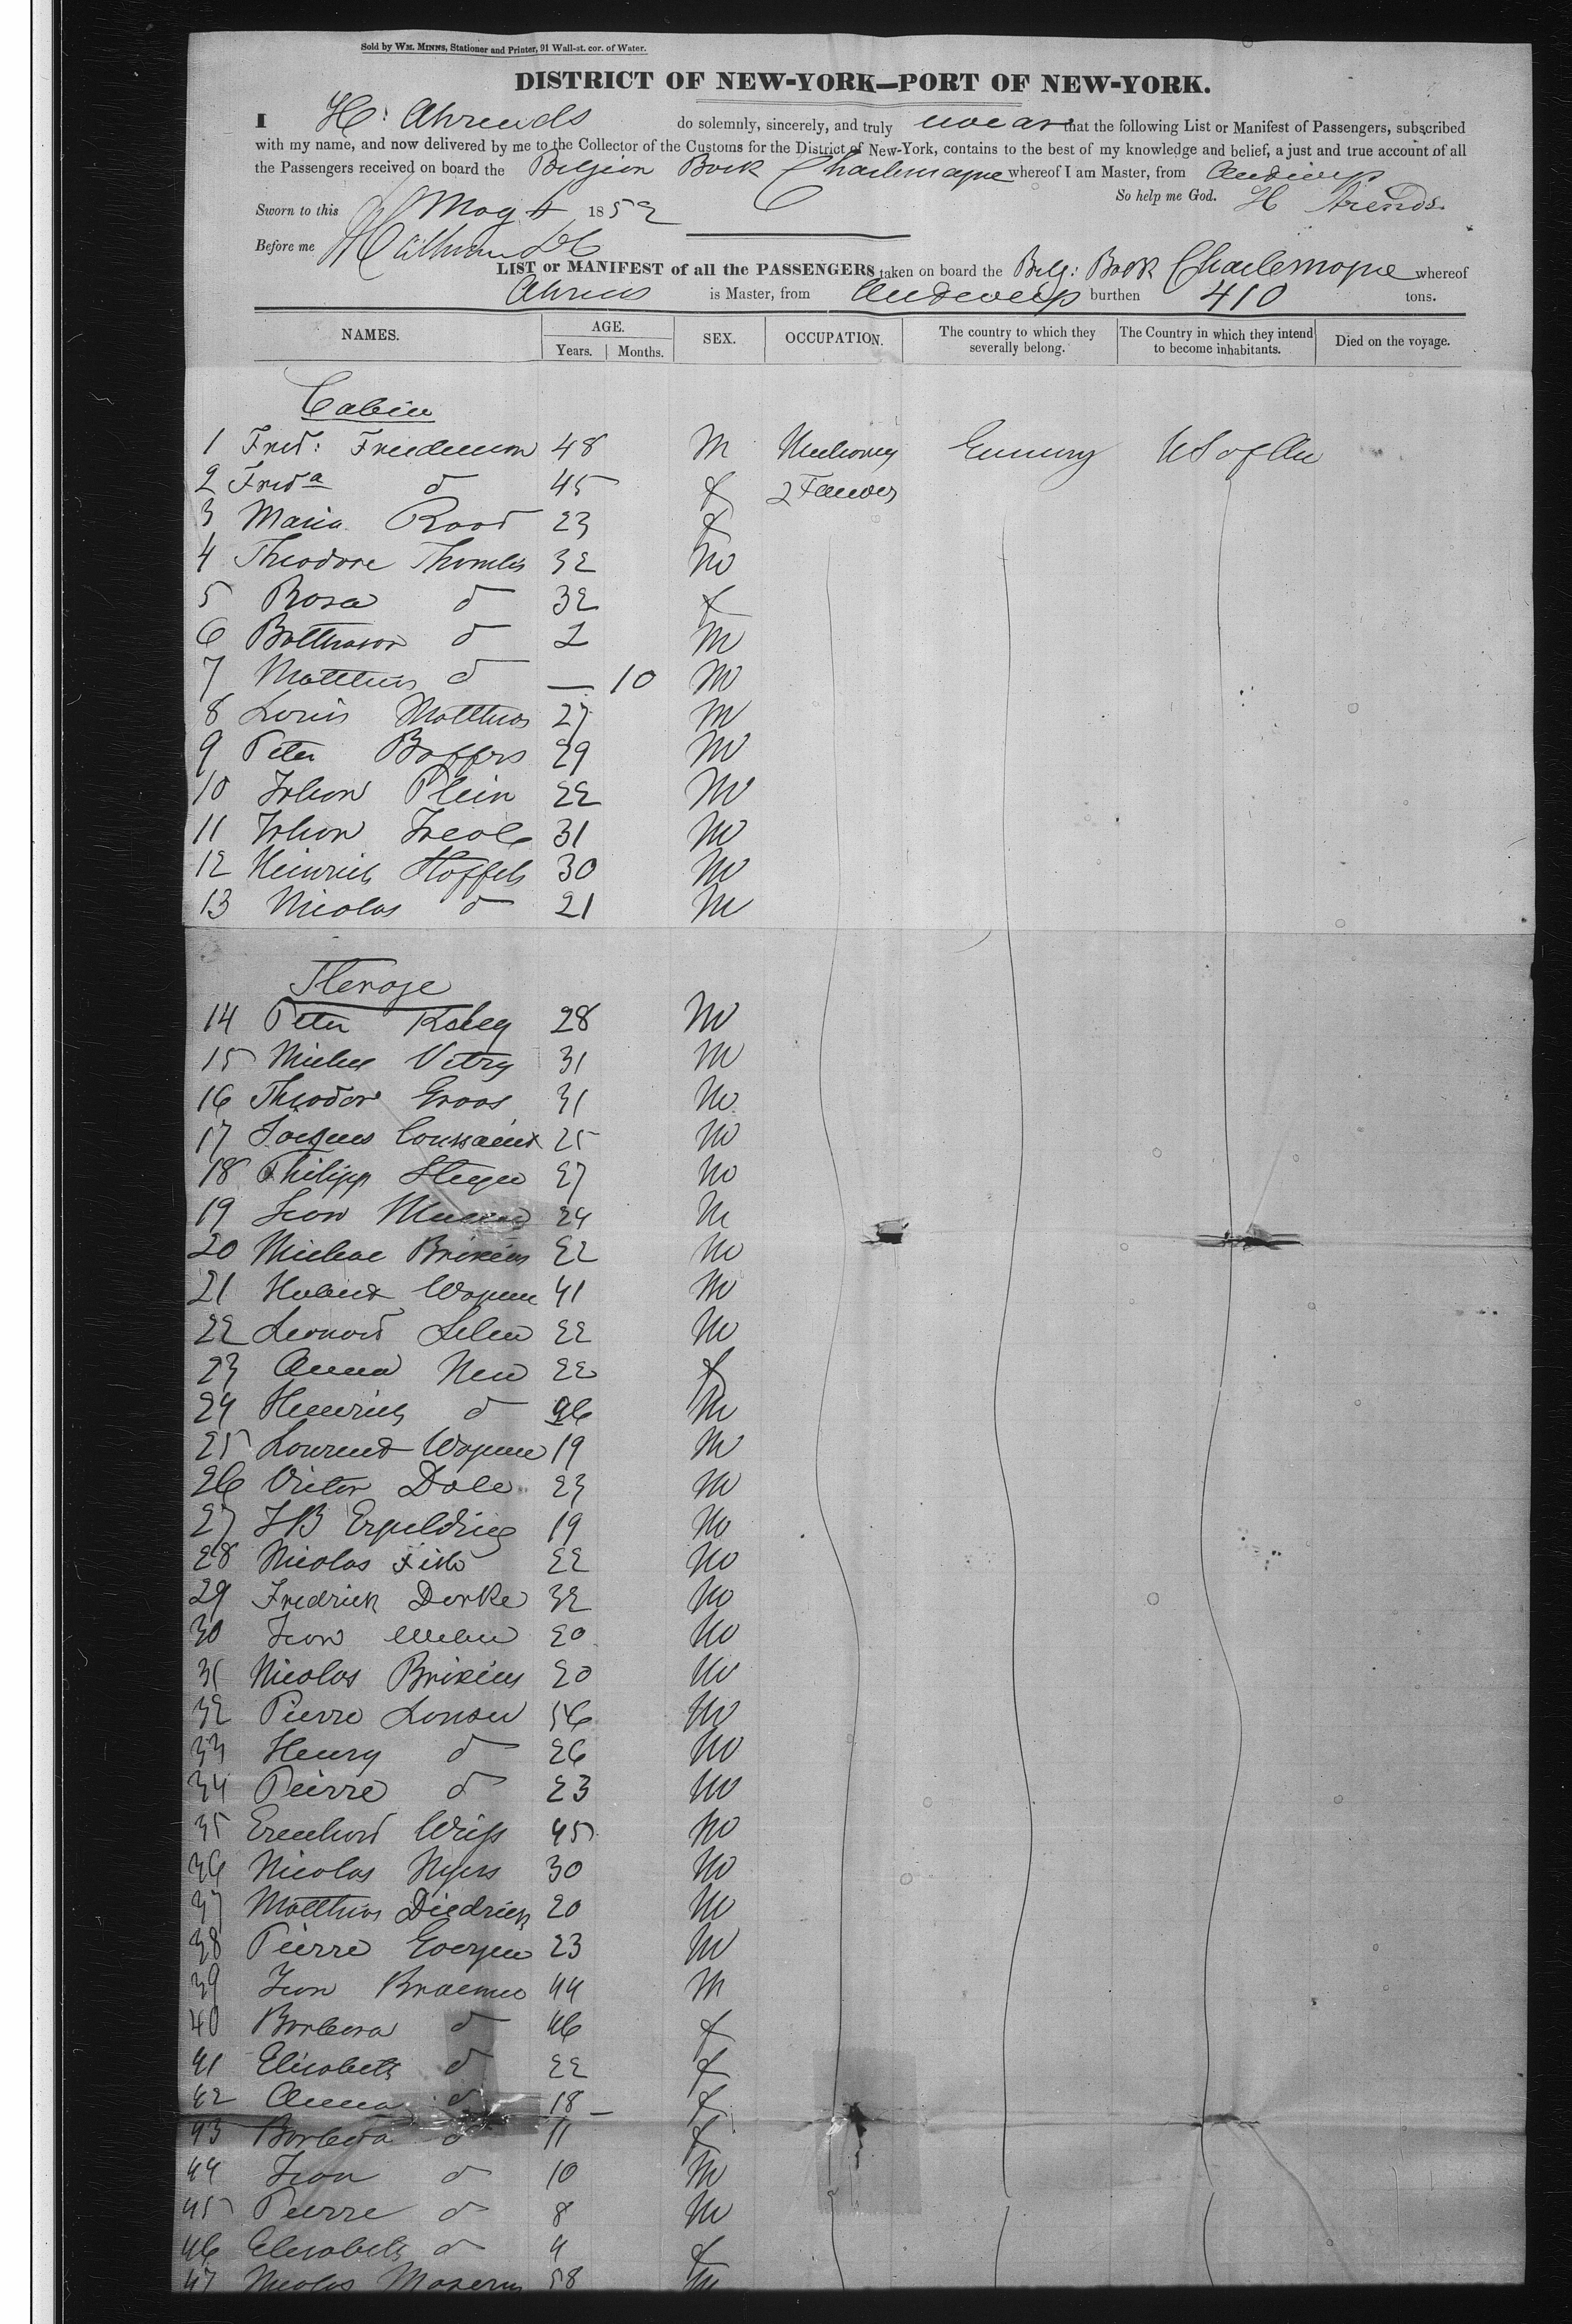 Sold by WM. MINNS, Stationer and Printer, 91 Wall-st. cor. of Water.
DISTRICT OF NEW-YORK—PORT OF NEW-YORK.
I H: Ahrends do solemnly, sincerely, and truly swear that the following List or Manifest of Passengers, subscribed
with my name, and now delivered by me to the Collector of the Customs for the District of New-York, contains to the best of my knowledge and belief, a just and true account of all
the Passengers received on board the Belgian Bark Charlemagne whereof I am Master, from Antwerp
So help me God. H Arends.
Sworn to this May 4 1852
Before me
LIST or MANIFEST of all the PASSENGERS taken on board the Belg: Bark Charlemagne whereof
Ahrens is Master, from Antwerp burthen 410 tons.
NAMES. AGE. Years. Months. SEX. OCCUPATION. The country to which they severally belong. The Country in which they intend to become inhabitants. Died on the voyage.
Cabin
1 Fred: Friedeman 48 M Germany US of Am
2 Freda d 45 f
3 Maria Rood 23 f
4 Theodore 32 M
5 Rosa d 32 f
6 d 2 M
7 Matthias d — 10 M
8 Louis Matthias 27 M
9 Peter Boffers 29 M
10 Johan Plein 22 M
11 Johan 31 M
12 Heinrich Hoffels 30 M
13 Nicolas d 21 M
Sterage
14 Peter 28 M
15 Michel Vitry 31 M
16 Theodor Groos 31 M
17 Jacques Toussaint 25 M
18 Philipp 27 M
19 Jean 24 M
20 Michae Brixius 22 M
21 Hubert Wagener 41 M
22 Leonard 22 M
23 Anna New 22 f
24 Heinrich d 26 M
25 Laurent Wagener 19 M
26 Victor Dole 23 M
27 JB Erpelding 19 M
28 Nicolas 22 M
29 Fredrick Derke 32 M
30 Jean Weber 20 M
31 Nicolas Brixius 20 M
32 Pierre 56 M
33 Henry d 26 M
34 Pierre d 23 M
35 45 M
36 Nicolas Nyers 30 M
37 Matthias Diedrich 20 M
38 Pierre Goergen 23 M
39 Jean 44 M
40 Barbara d 46 f
41 Elisabeth d 22 f
42 Anna d 18 — f
43 Barbara d 11 f
44 Jean d 10 M
45 Pierre d 8 M
46 Elisabeth d 4 f
47 Nicolas 58 M